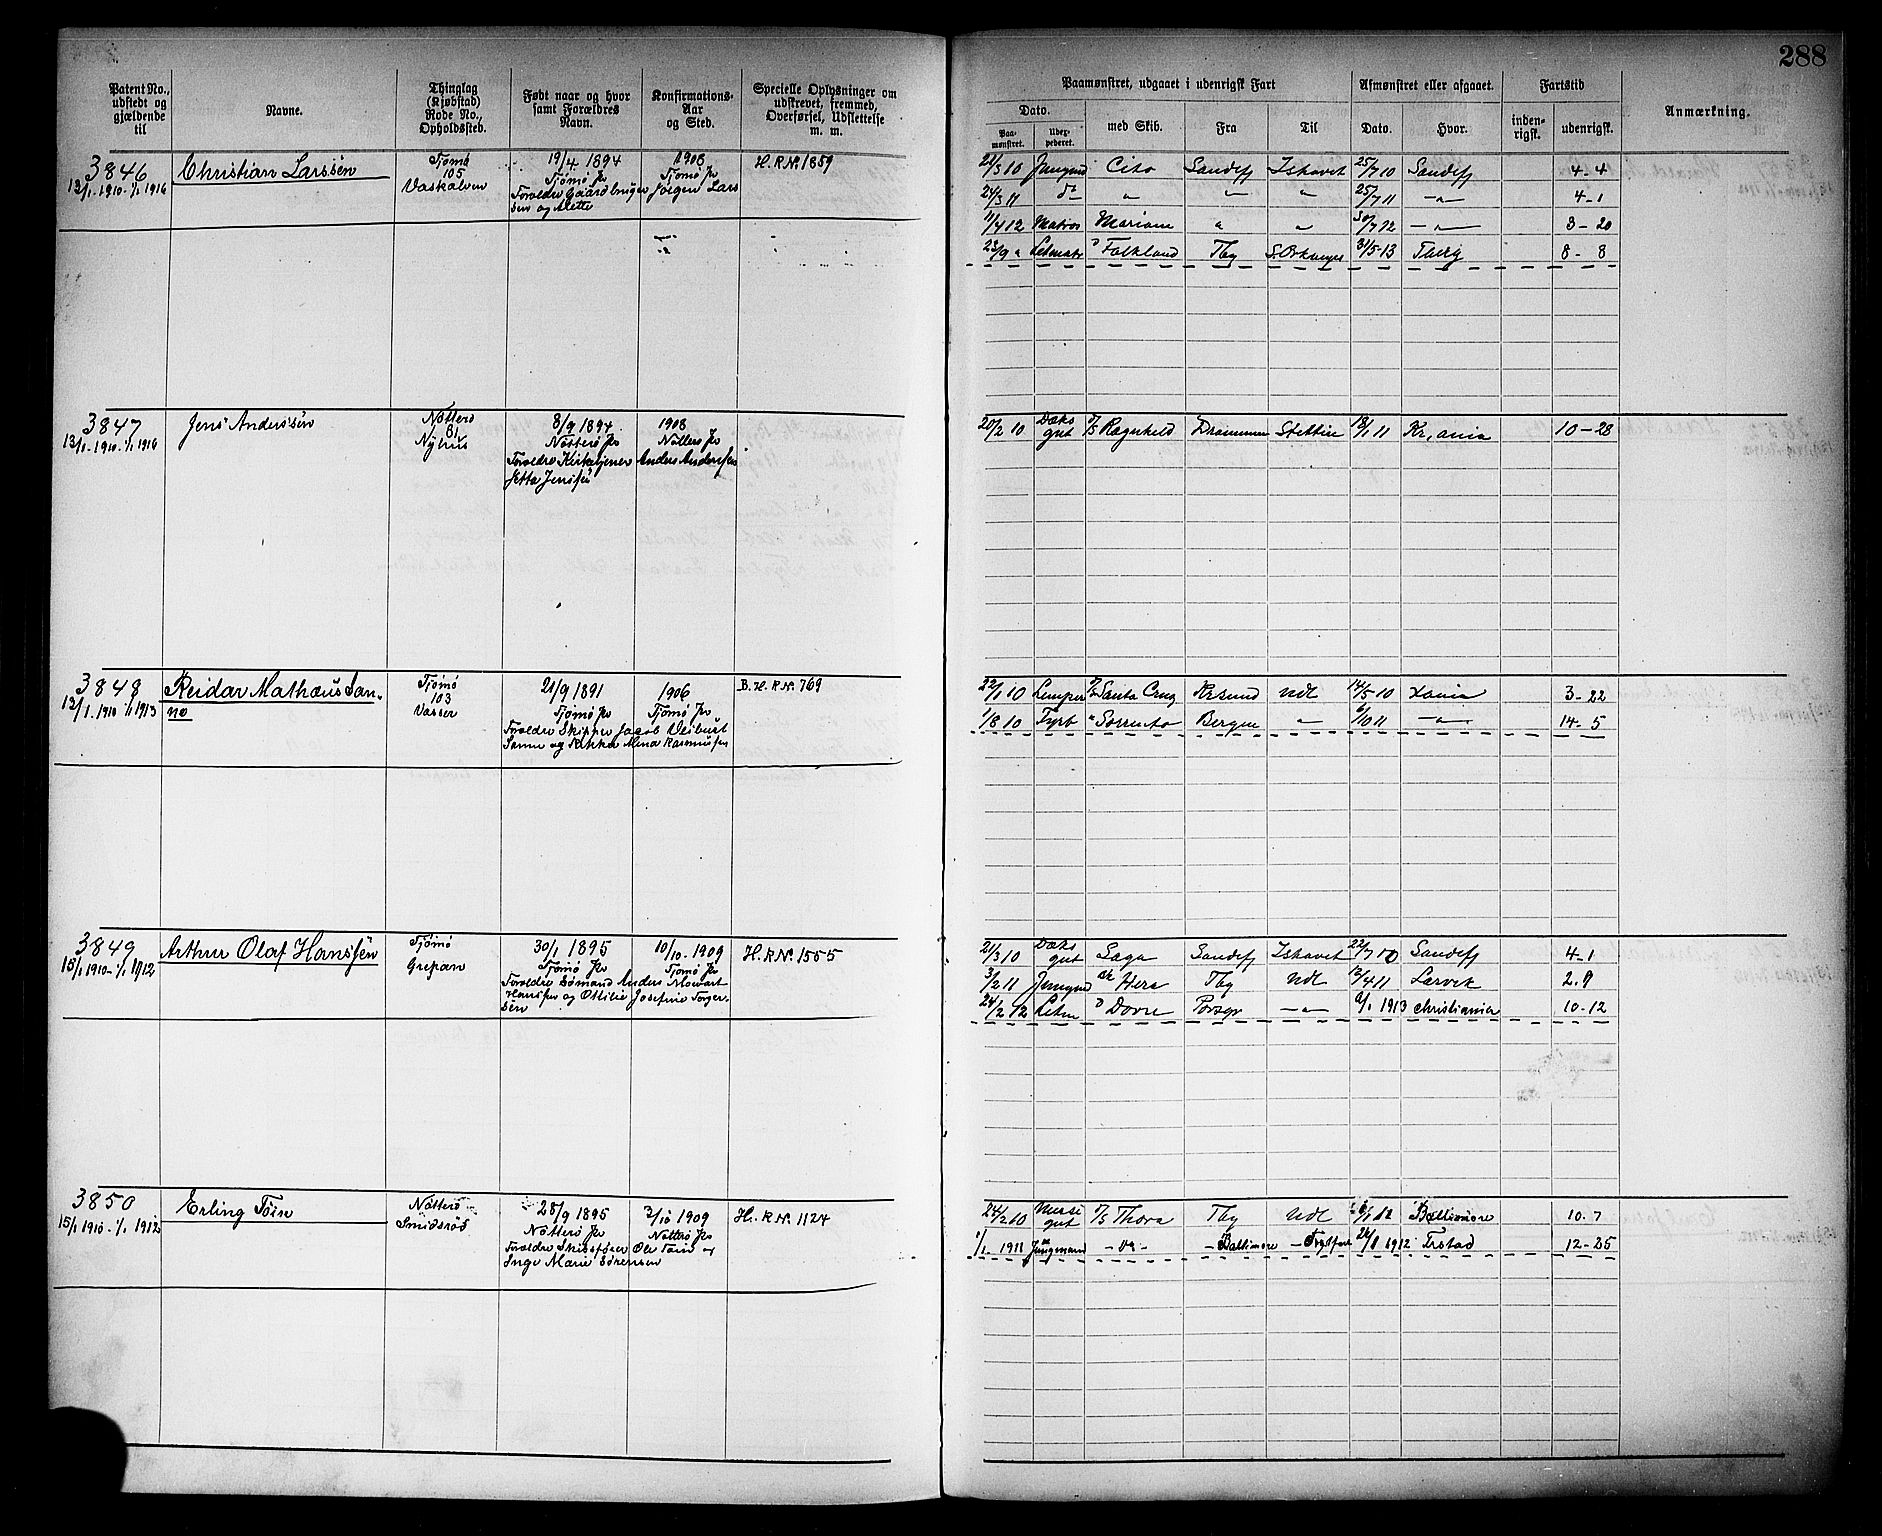 288
Patent No., udstedt og gjældende til
Navne.
Thinglag (Kjøbstad) Rode No., Opholdssted.
Født naar og hvor samt Forældres Navn.
Konfirmations-Aar og Sted.
Specielle Oplysninger om udskrevet, fremmed, Overførsel, Udslettelse m. m.
Paamønstret, udgaaet i udenrigsk Fart
Afmønstret eller afgaaet.
Fartstid
Anmærkning.
Dato.
Paa-mønstret.
med Skib.
Fra
Til
Dato.
Hvor.
inden-rigsk.
udenrigsk.
3846
12/1.1910-1/1 1916
Christian Larssen
Tjømø
105
Vaskalven
19/4 1894
Tjømø Ps
Forældre Gaardbruger Jørgen Lars
sen og Alette
1908
Tjømø Ps
H.R.No.1859
21/3 10 Jungmd Cito Sandefj Ishavet 25/7 10 Sandefj 4-4
24/3 11 do " " " 25/7 11 -"- 4-1
11/4 12 Matros Mariane " " 30/7 12 -"- 3-20
23/9 " Letmatr D Falkland Tbg S.Orknøyes 31/5-13 Tberg 8-8
3847
13/1.1910-1/1 1916
Jens Anderssen
Nøtterø
81
Nyhus
8/9 1894
Nøtterø Ps
Forældre Kirketjener Anders Anderssen
Jetta Jenssen
1908
Nøtterø Ps
20/2 10 Dæksgut D/S Ragnhild Drammen Stettin 18/1 11 Kr,ania 10-28
3848
12/1.1910 1/1 1913
Reidar Mathæus San-
ne
Tjømø
103
Vasser
21/9 1891
Tjømø Ps
Forældre Skipper Jacob
Sanne og Rikka Mina Rasmussen
1906
Tjømø Ps
B.H.R.No. 769
22/1 10 Lemper D/S Santa Cruz Krsund Udl 14/5 10 Xania 3-22
1/8 10 Fyrb " Sorrento Bergen " 6/10 11 -"- 14-5
3849
15/1 1910-1/1 1912
Arthur Olaf Hanssen
Tjømø
Grepan
30/1 1895
Tjømø Ps
Forældre Sømand Anders Mowart
Hanssen og Ottilie Josefine Torger-
sen
10/10-1909
Tjømø Ps
H.R.No. 1555
21/3 10 Dæksgut Saga Sandefj Ishavet 22/7 10 Sandefj 4-1
3/2 11 Jungmd Hera Tbg Udl 12/4 11 Larvik 2.9
24/2 12 Letm D Dovre Porsgr -"- 6/1 1913 Christiania 10-12
3850
15/1 1910-1/1 1912
Erling Foin
Nøtterø
Smidsrød
28/9 1895
Nøtterø Ps
Forældre Skibsfører Ole Foin og
Inge Marie Sørensen
3/10 1909
Nøtterø Ps
H.R.No. 1124
24/2 10 D/S Thora Tbg Udl Baltimore 10.7
1/1 1911 Jungmand -do- -Baltimore 24/1 1912 Frstad 12-25